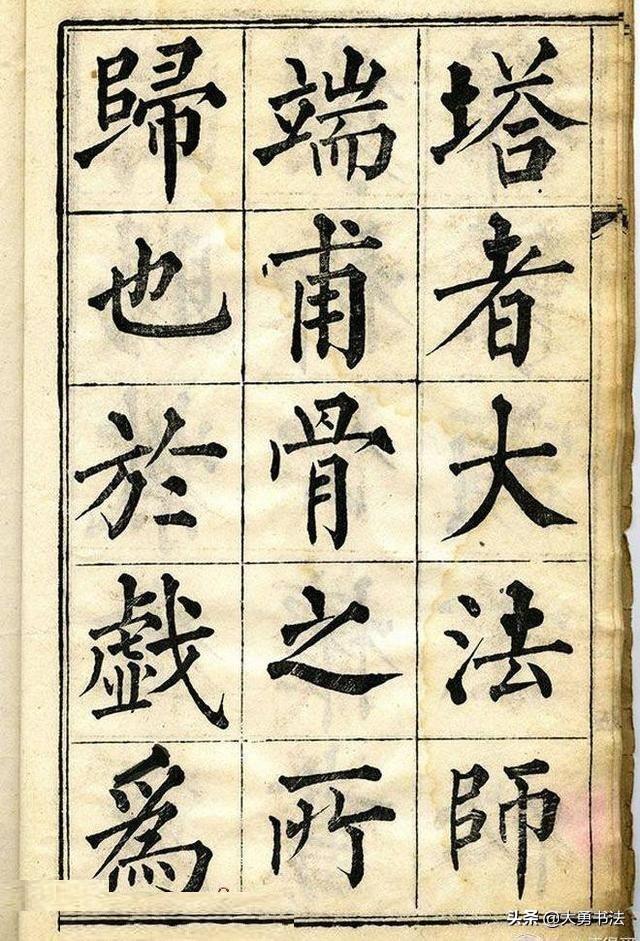 塔者大法師
端甫骨之所
歸也於戲爲
头条 @大勇书法